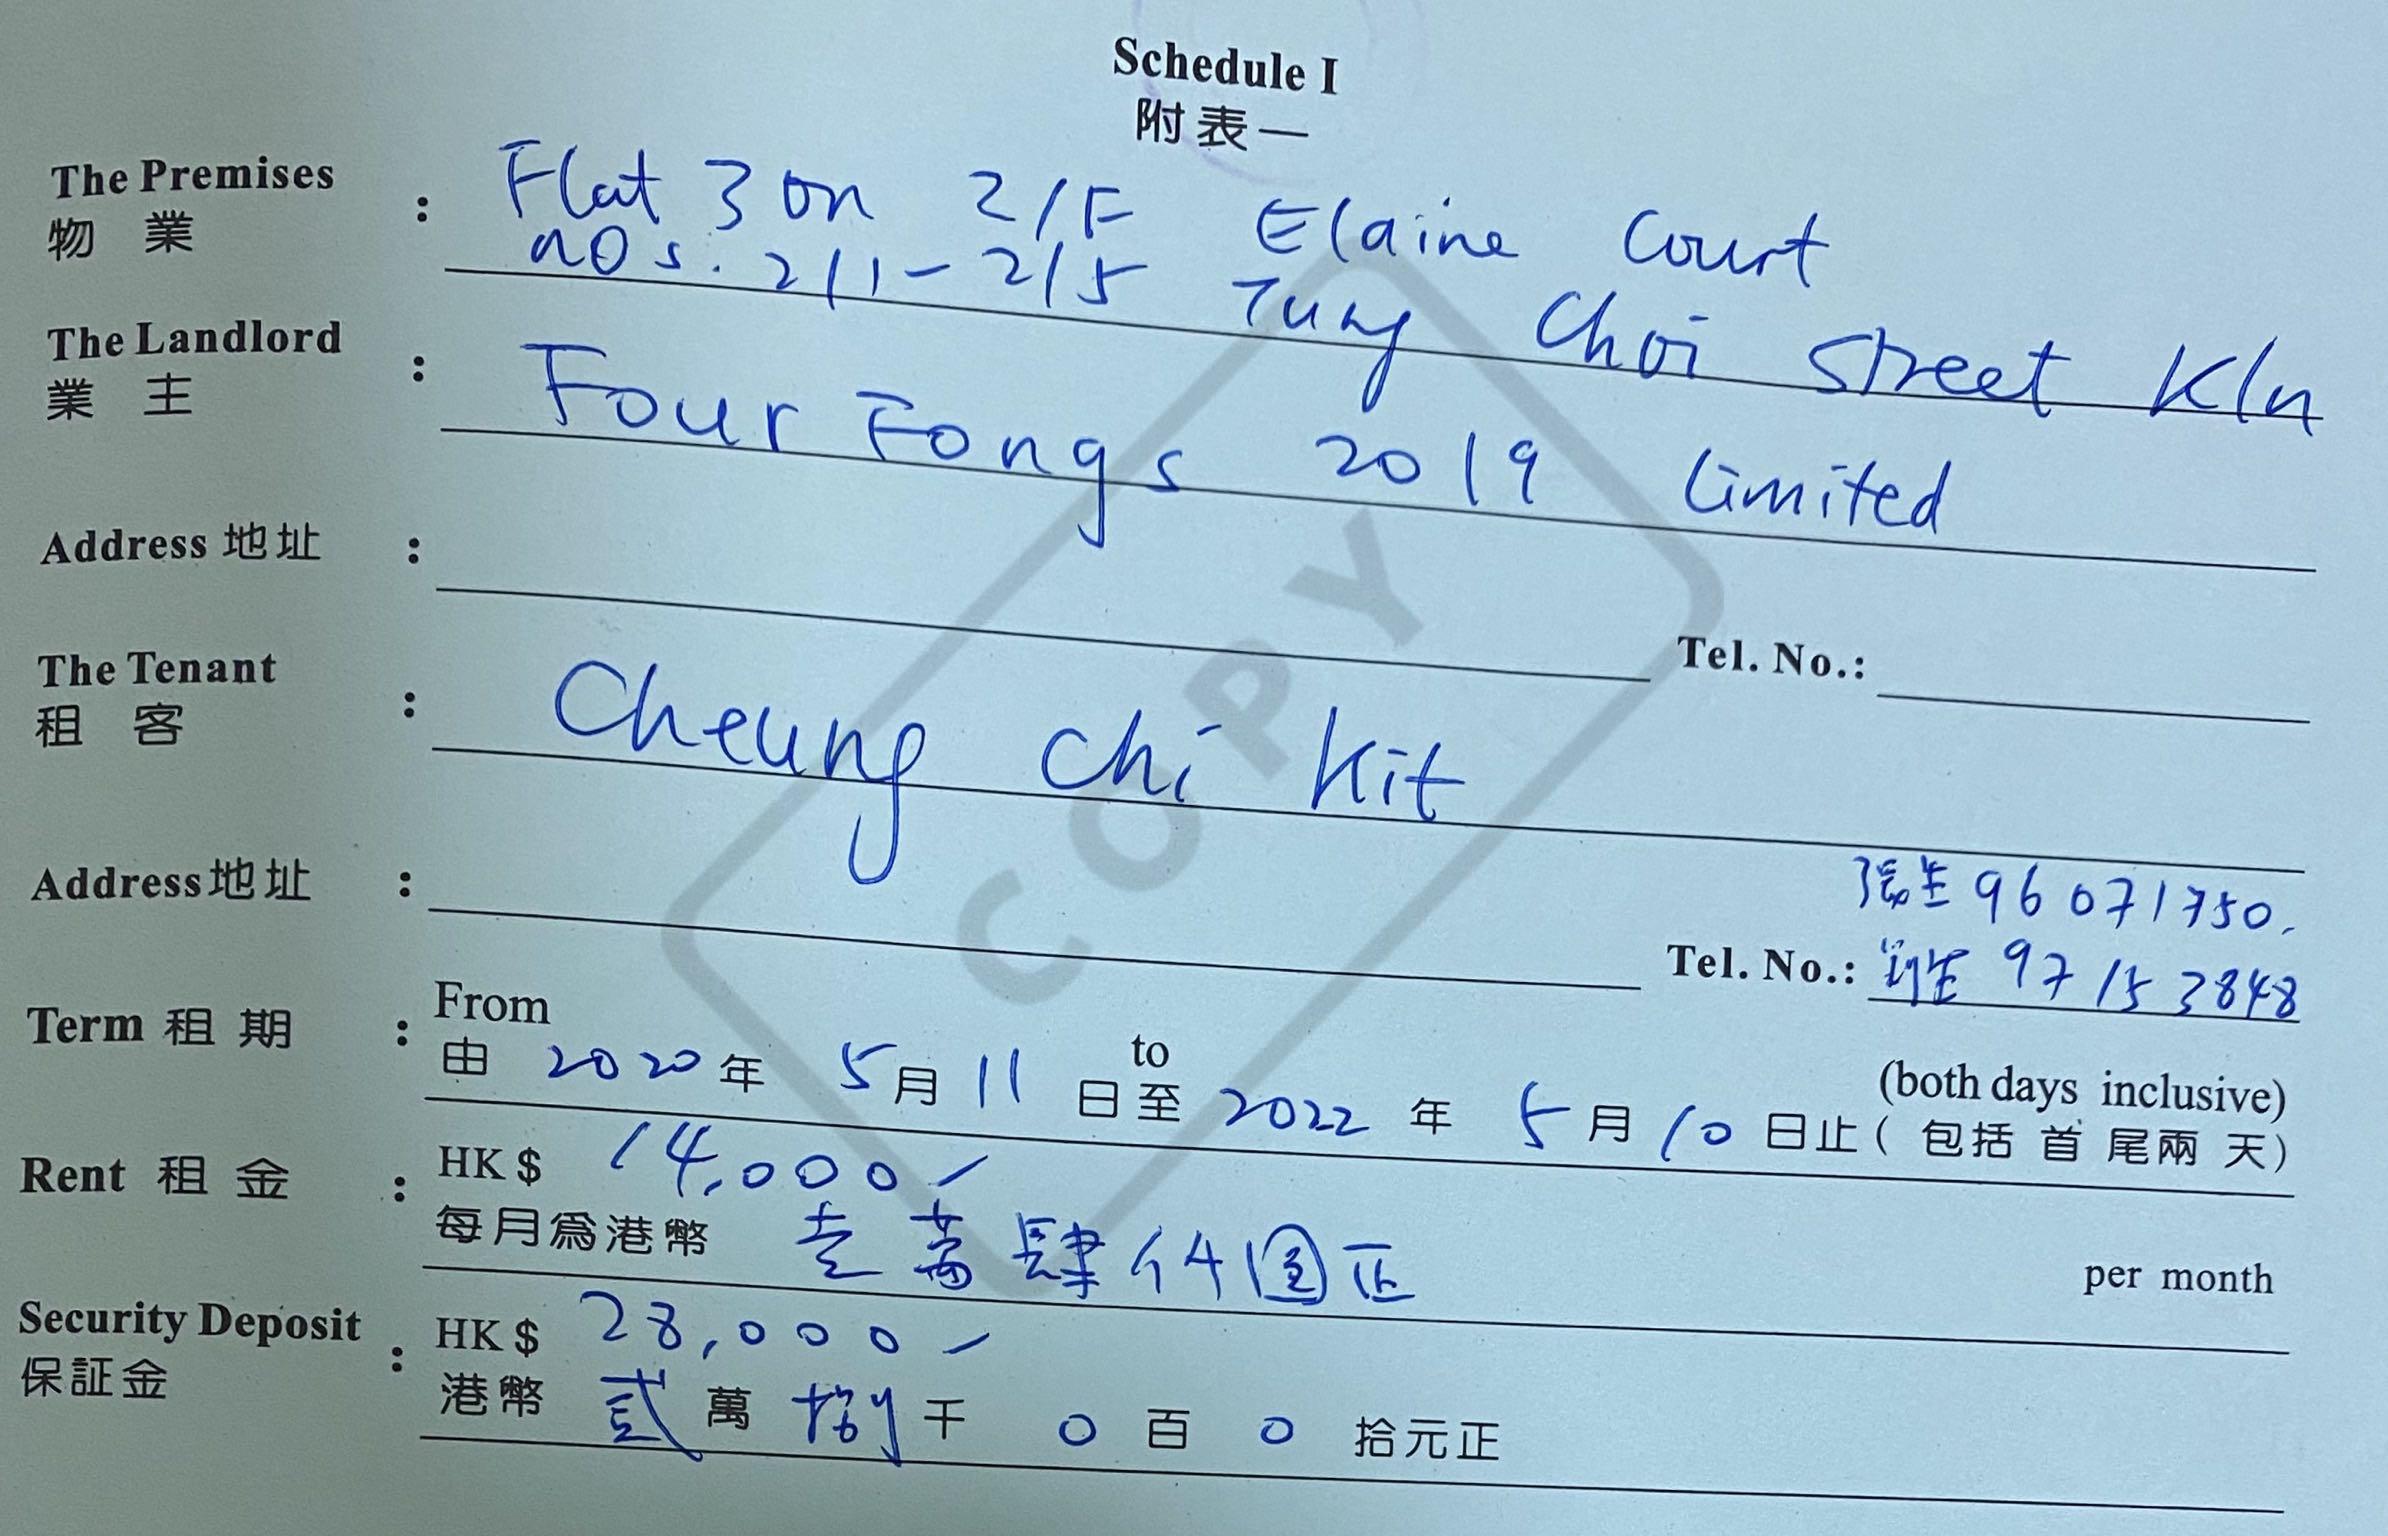 Schedule I
附表一
The Premises : Flat 3 on 2/F Elaine Court
物業 nos. 211-215 Tung Choi Street Kln
The Landlord : Four Fongs 2019 Limited
業主
Address 地址 :
Tel. No.:
The Tenant : Cheung Chi Kit
租客
張生 96071750.
Address地址 :
Tel. No.: 生 97153848
Term 租期 : From to (both days inclusive)
由 2020 年 5 月 11 日至 2022 年 5 月 10 日止(包括首尾兩天)
Rent 租金 : HK$ 14,000/
每月為港幣 壹萬肆仟圓正 per month
Security Deposit : HK$ 28,000/
保証金 港幣 貳萬捌千 0 百 0 拾元正
COPY